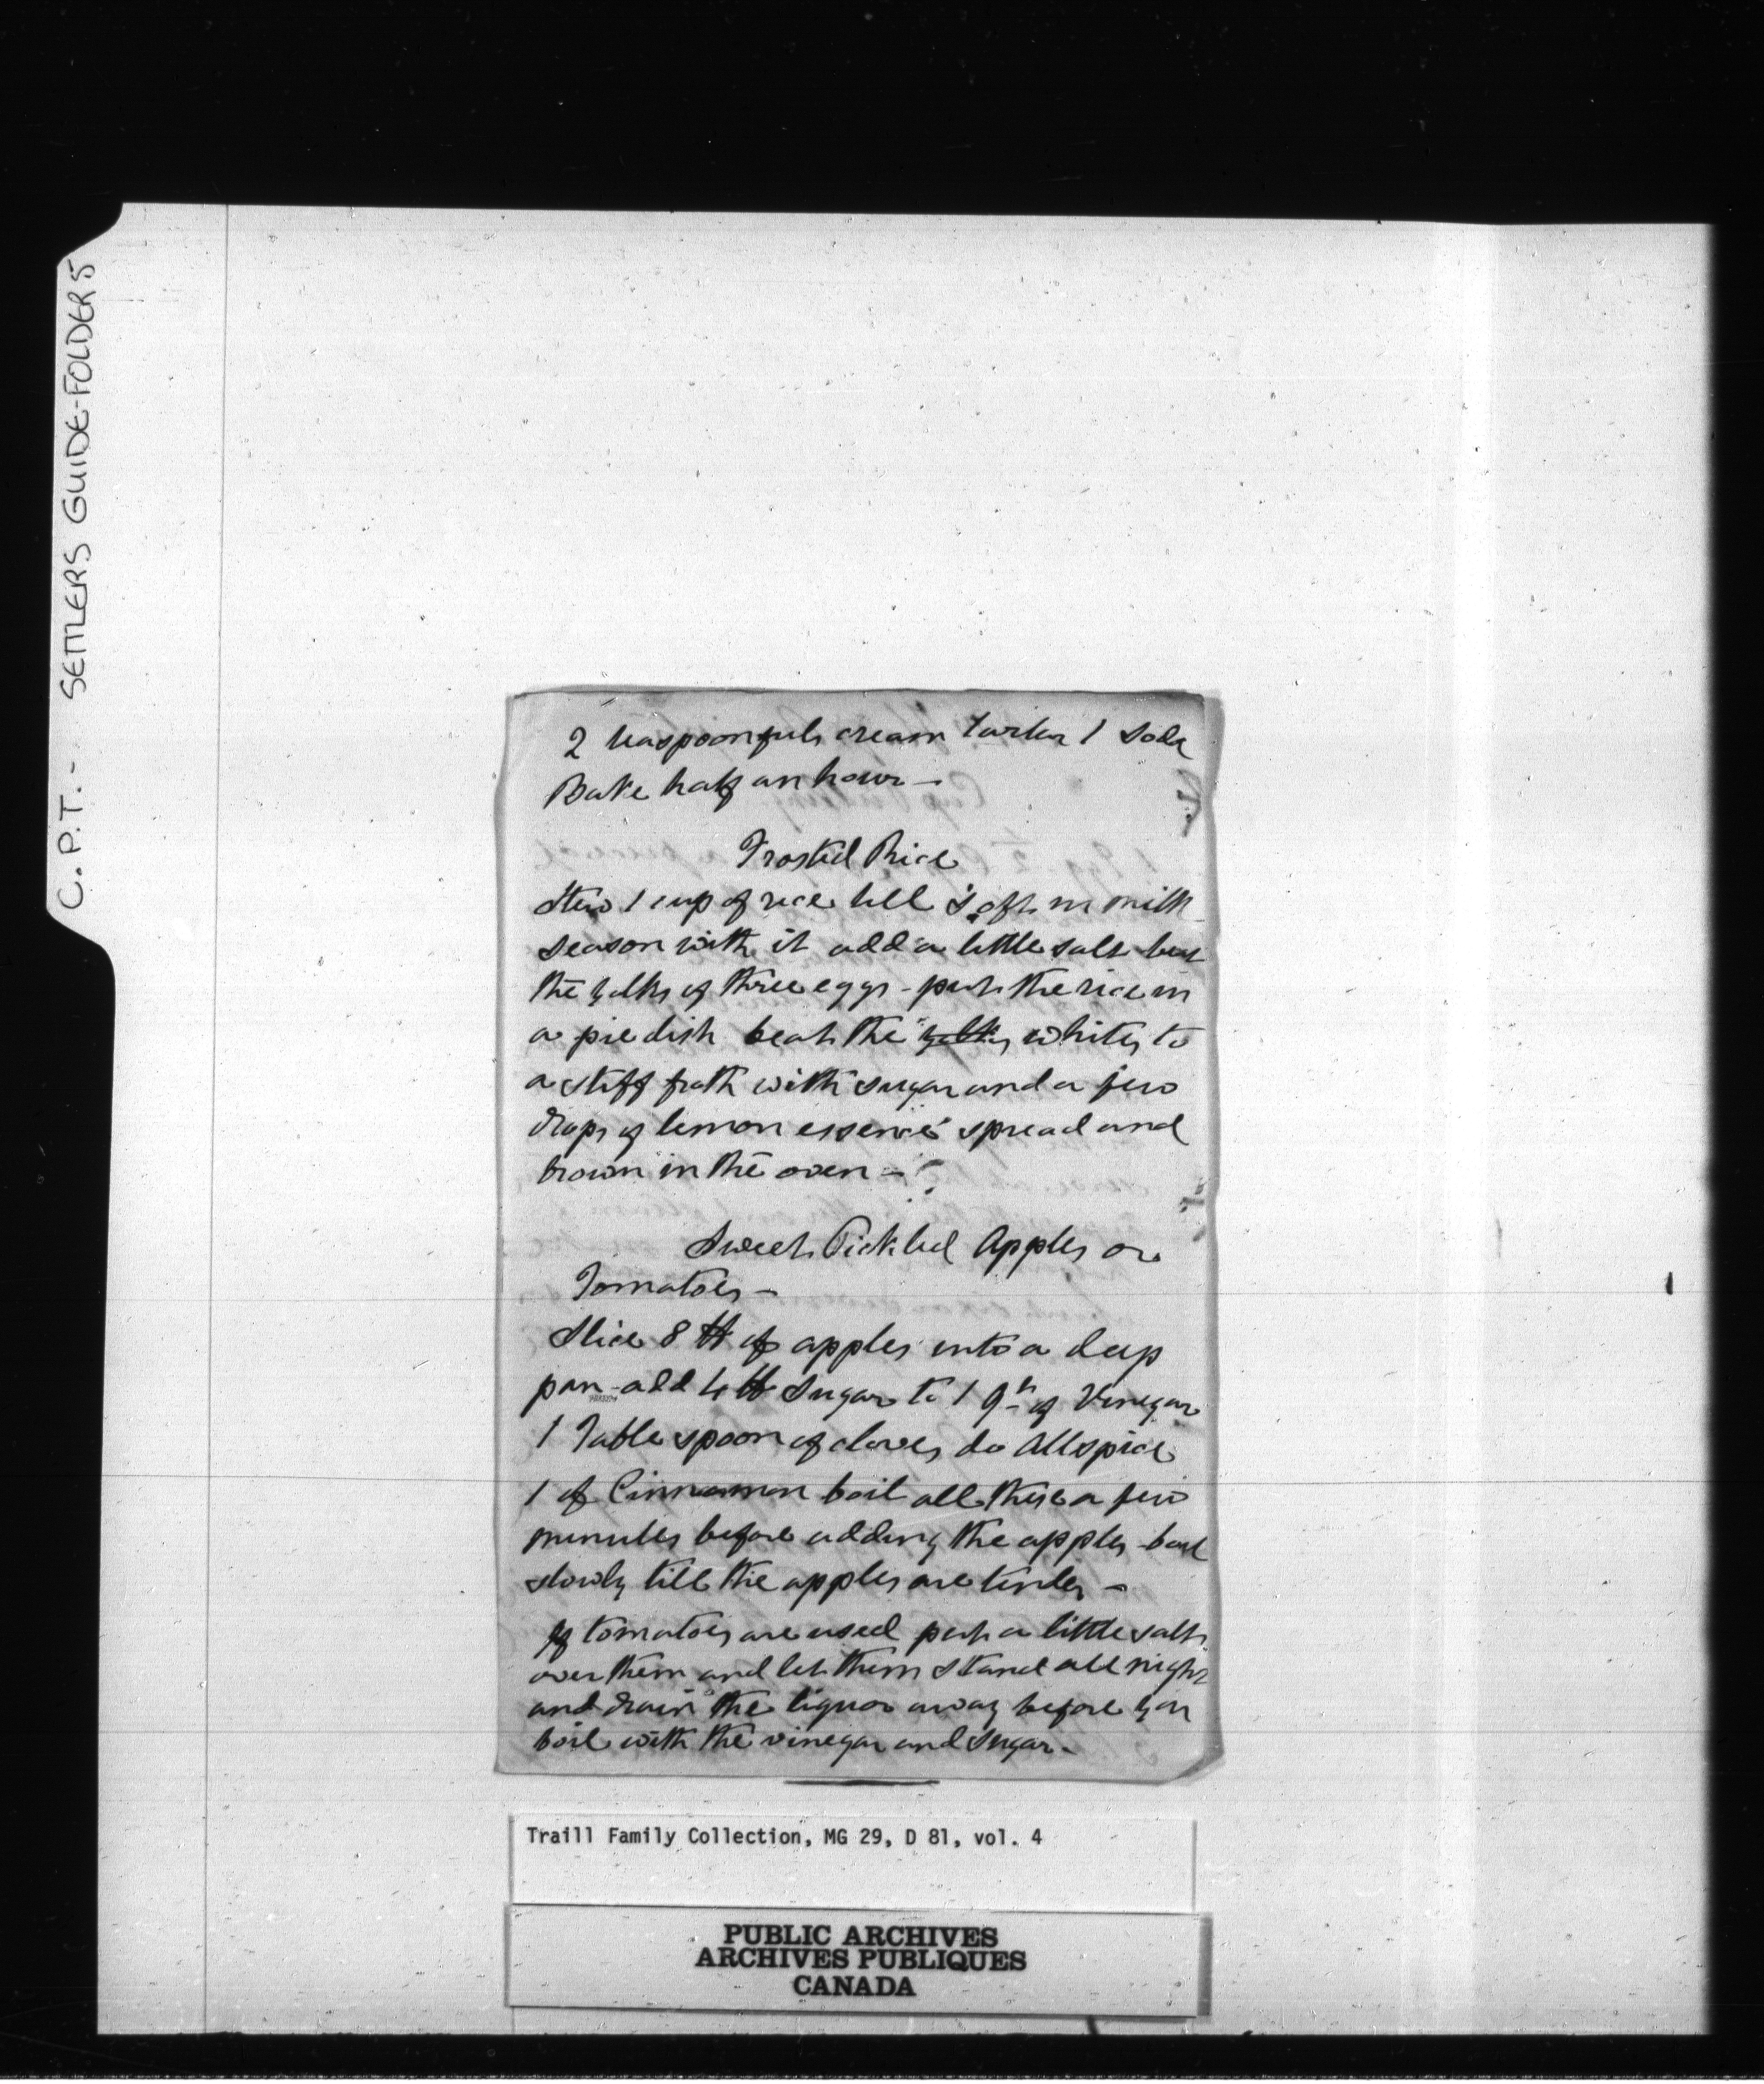 C.P.T. - SETTLERS GUIDE-FOLDER 5
2 teaspoonfuls cream Tarter 1 Soda
Bake half an hour —
Frosted Rice
Stew 1 cup of rice till soft in milk
season with it add a little salt beat
the yolks of three eggs - put the rice in
a pie dish beat the yolks whites to
a stiff froth with sugar and a few
drops of lemon essence spread and
brown in the oven —
Sweet Pickled Apples or
Tomatoes —
Slice 8 lb of apples into a deep
pan - add 4 lb Sugar to 1 qt of Vinegar
1 Table spoon of cloves do Allspice
1 of Cinnamon boil all these a few
minutes before adding the apples - boil
slowly till the apples are tender —
If tomatoes are used put a little salt
over them and let them stand all night
and drain the liquor away before you
boil with the vinegar and sugar —
Traill Family Collection, MG 29, D 81, vol. 4
PUBLIC ARCHIVES
ARCHIVES PUBLIQUES
CANADA